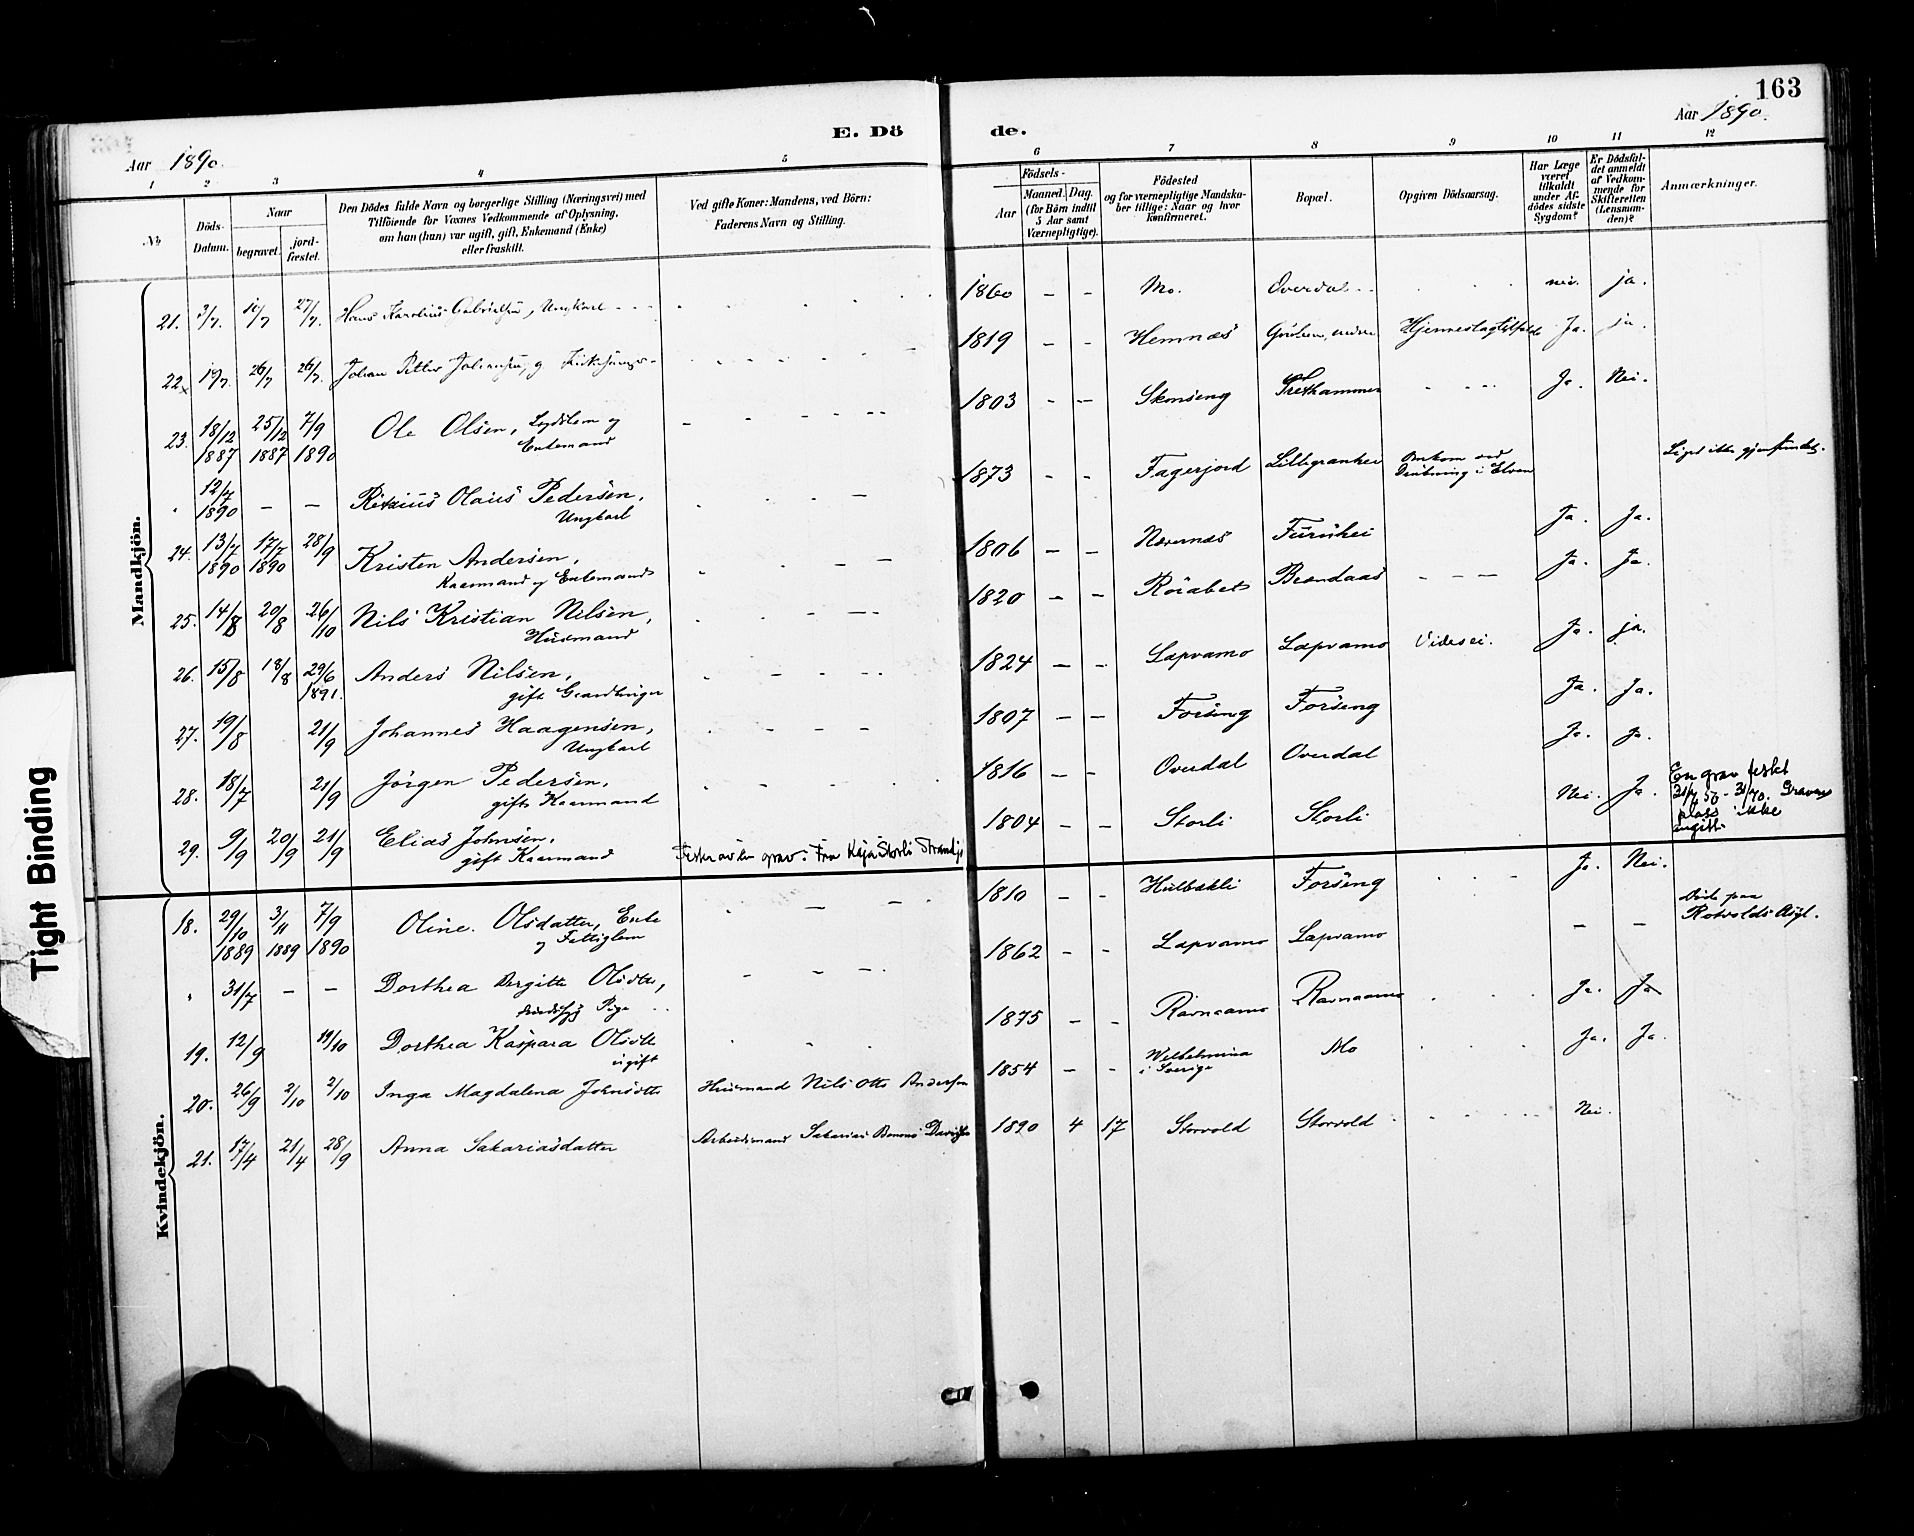 163
E. Dö de.
Aar 1890.
Aar 1890.
1 2 3 4 5 6 7 8 9 10 11 12
No.
Döds-Datum.
Naar
begravet.
jord-fæstet.
Den Dödes fulde Navn og borgerlige Stilling (Næringsvei) med
Tilföiende for Voxnes Vedkommende af Oplysning,
om han (hun) var ugift, gift, Enkemand (Enke)
eller fraskilt.
Ved gifte Koner: Mandens, ved Börn:
Faderens Navn og Stilling.
Födsels-
Aar
Maaned. Dag.
(for Börn indtil
5 Aar samt
Værnepligtige).
Födested
og for værnepligtige Mandska-
ber tillige: Naar og hvor
konfirmeret.
Bopæl.
Opgiven Dödsaarsag.
Har Læge
været
tilkaldt
under Af-
dödes sidste
Sygdom?
Er Dödsfal-
det anmeldt
af Vedkom-
mende for
Skifteretten
(Lensman-
den)?
Anmærkninger.
Mandkjön.
21. 3/7. 27/7. Hans Karelius Gabrielsen, Ungkarl 1860 – – Mo. Overdal nei. ja.
22. 19/7. 26/7 26/7. Johan Petter Johansen, g. 1819 – – Hemnæs Hjerneslagtilfælde Ja. ja.
23. 18/12 1887 25/12 1887 7/9 1890 Ole Olsen, Lægdslem og
Enkemand 1803 – – Skonseng Ja. Nei.
" 12/7 1890 – – Olaus Pedersen,
Ungkarl 1873 – – Fagerjord Lillegranhei Omkom ved
Drukning i Elven Liget ikke gjenfundet.
24. 13/7 1890 17/7 1890 28/9 Kristen Andersen,
Kaarmand og Enkemand 1806 – – Nævernæs Furuhei Ja. Ja.
25. 14/8 20/8 26/10 Nils Kristian Nilsen,
Husmand 1820 – – Röiabet Brændaas – – – Ja. Ja.
26. 15/8 18/8 29/6 1891. Anders Nilsen,
gift Gaardbruger 1824 – – Lapvamo Lapvamo Ja. ja.
27. 19/8 21/9 Johannes Haagensen,
Ungkarl 1807 – – Forseng Forseng Ja. Ja.
28. 18/7 21/9 Jörgen Pedersen,
gift Kaarmand 1816 – – Overdal Overdal Ja. Ja.
29. 9/9 20/9 21/9 Elias Johnsen,
gift Kaarmand Fester av en grav: Fru Kaja Storli 1804 – – Storli Storli Nei. Ja. En grav festet
31/7 50 - 31/7 70. Gravens
plass ikke
angitt.
Kvindekjön.
18. 29/10 1889 3/11 1889 7/9 1890 Oline Olsdatter, Enke
og Fattiglem 1810 – – Hulbækli Forseng Ja. Nei.
" 31/7 – – Dorthea Birgitte Olsdtr,
sindssyg Pige 1862 – – Lapvamo Lapvamo – – Döde paa
Rotvolds Asyl.
19. 12/9 19/10 Dorthea Kaspara Olsdtr
ugift 1875 – – Ravnaamo Ravnaamo Ja. Ja
20. 26/9 2/10 2/10 Inga Magdalena Johnsdtr Husmand Nils Otto Andersen 1854 – – Wilhelmina
i Sverige Mo Ja. Ja.
21. 17/4 21/4 28/9 Anna Sakariasdatter Arbeidsmand Sakarias 1890 4 17 Storvold Storvold Nei.
Tight Binding